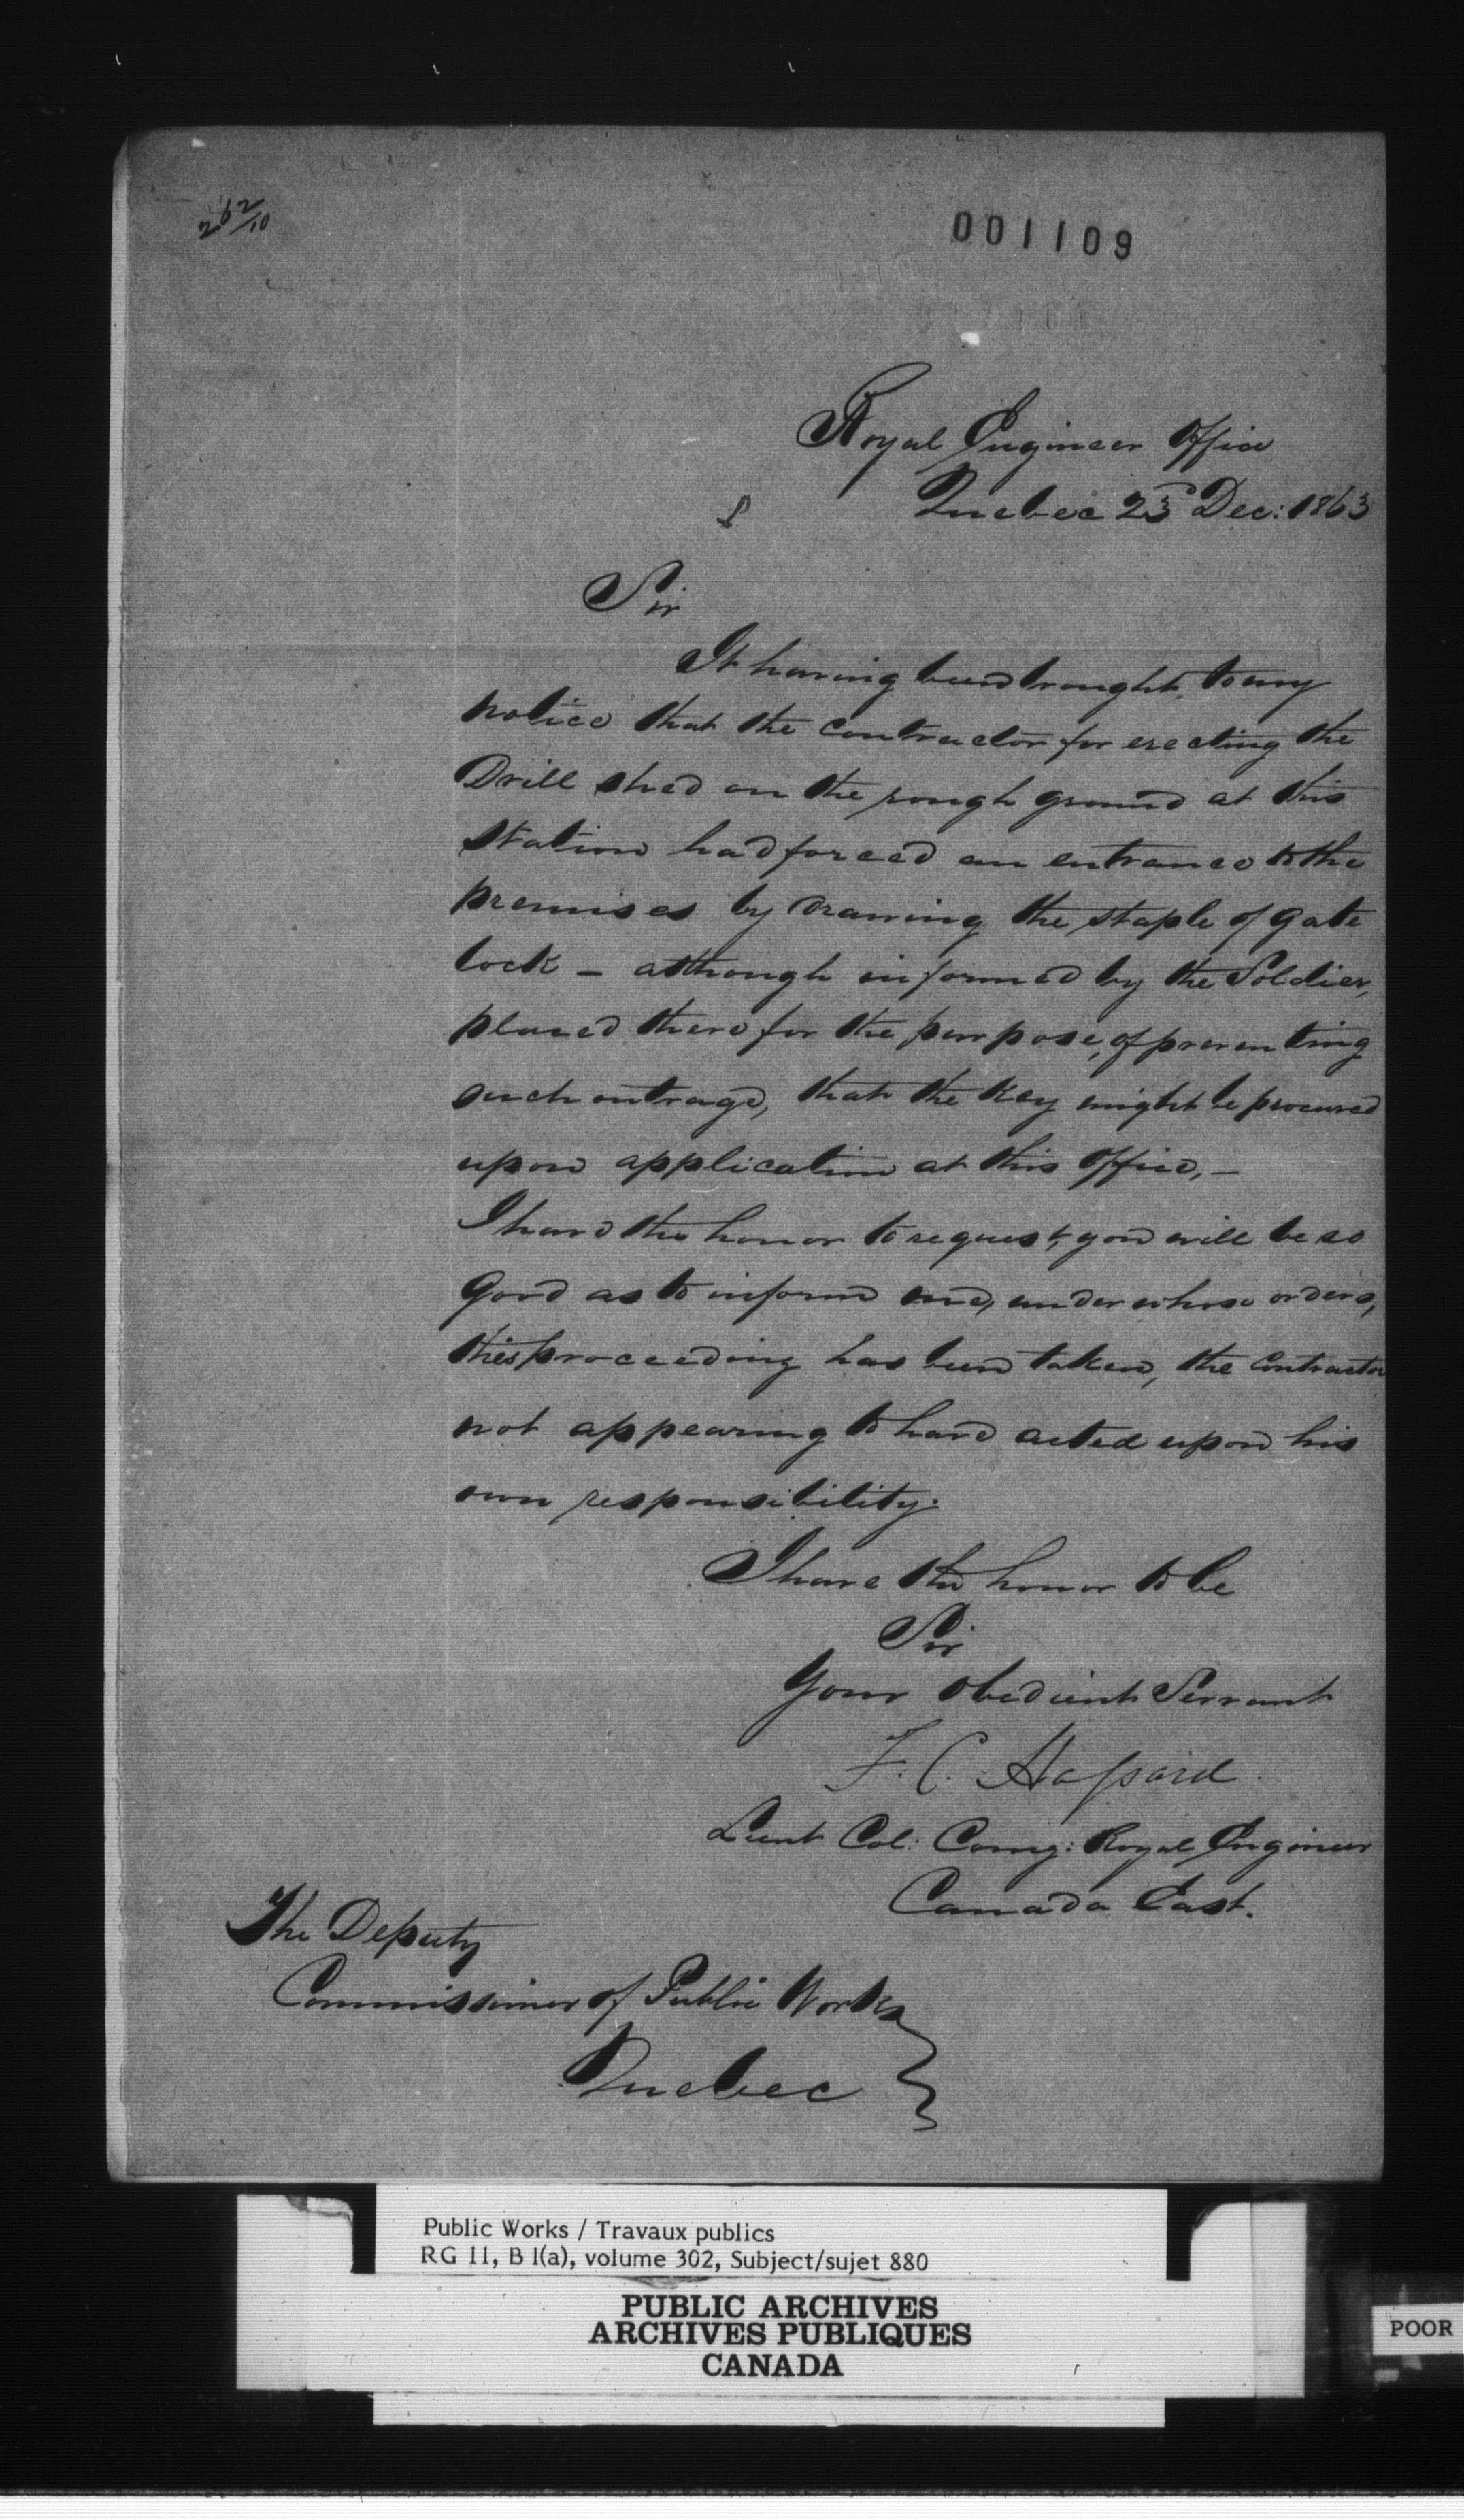 262/10
001109
Royal Engineer Office
Quebec 23d Dec: 1863
Sir
It having been brought, to my
notice that the contractor for erecting the
Drill shed on the rough ground at this
station had forced an entrance to the
premises by drawing the staple of gate
lock – although informed by the Soldier,
placed there for the purpose, of preventing
such outrage, that the key might be procured
upon application at this office, –
I have the honor to request, you will be so
good as to inform me, under whose orders,
this proceeding has been taken, the Contractor
not appearing to have acted upon his
own responsibility.
I have the honor to be
Sir
Your obedient Servant
F. C. Hassard.
Lieut Col: Comg: Royal Engineer
Canada East.
The Deputy
Commissioner of Public Works
Quebec
Public Works / Travaux publics
RG 11, B 1(a), volume 302, Subject/sujet 880
PUBLIC ARCHIVES
ARCHIVES PUBLIQUES
CANADA
POOR